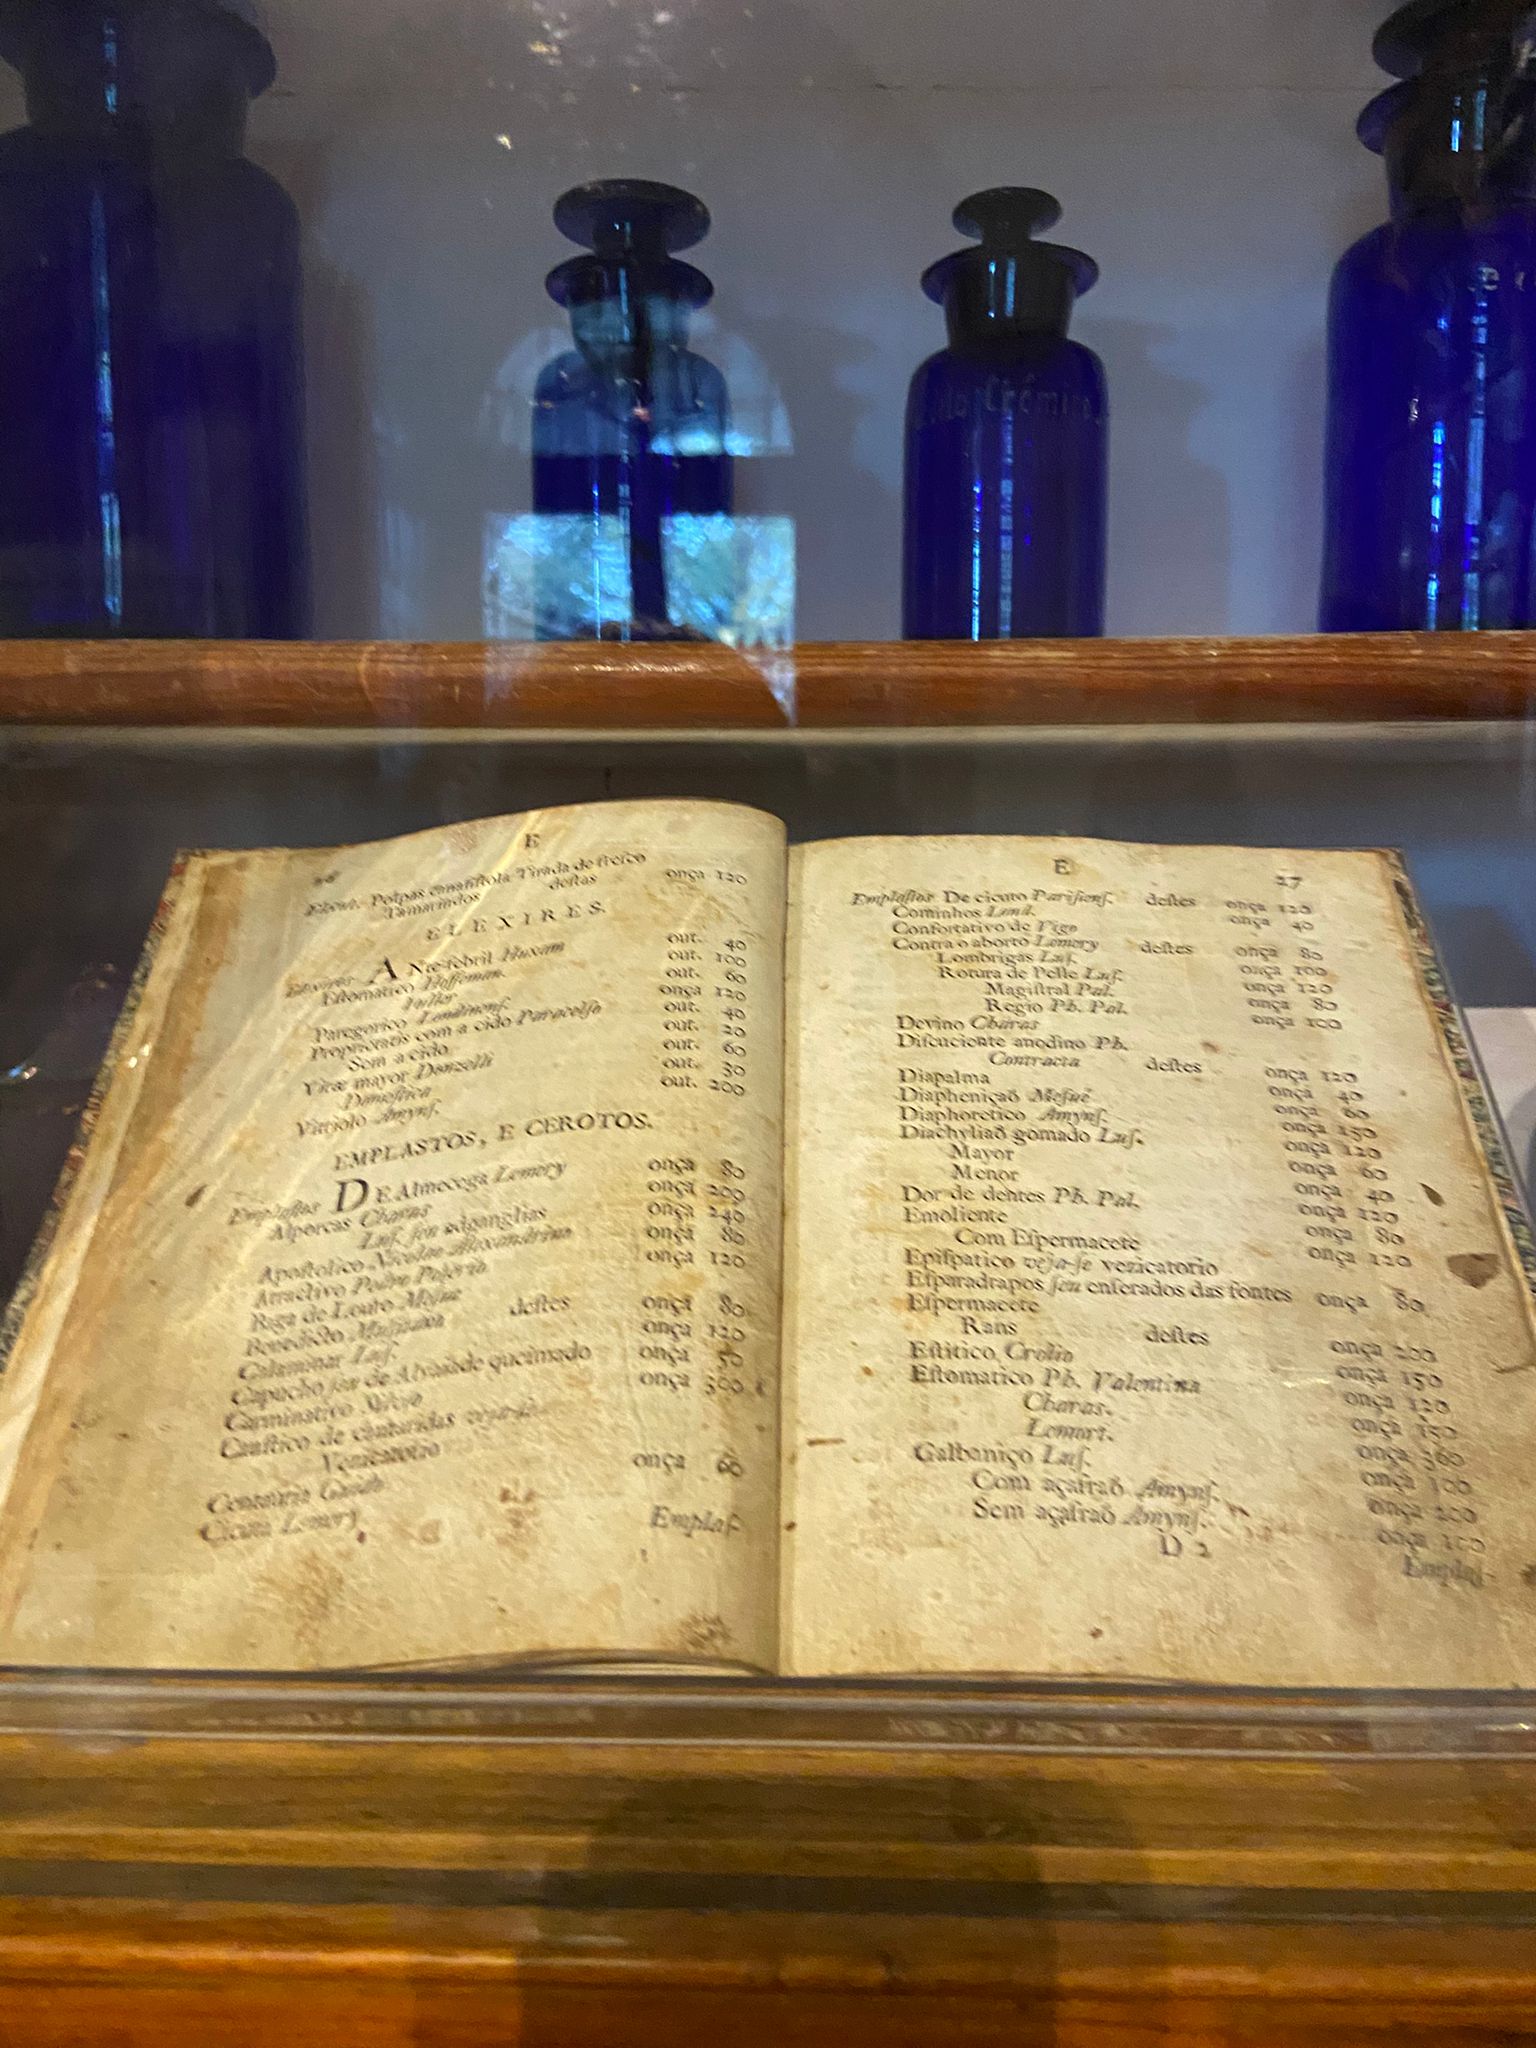 Crómico
E
Elect. Polpas canafistola Tirada de fresco
Tamarindos destas onça 120
ELEXIRES.
Elixires ANte-febril Huxam out. 40
Estomatico Hoffeman. out. 100
Fuller out. 60
Paregorico Londinens. onça 120
Proprietatis com a cido Paracelso out. 40
Sem a cido out. 20
Vitæ mayor Donzelli out. 60
Domestica out. 30
Vitriolo Amyns. out. 200
EMPLASTOS, E CEROTOS.
Emplastos DE Almecega Lemery onça 80
Alporcas Charas onça 200
Lus. seu adganglias onça 240
Apostolico Nicolao Alexandrino onça 80
Atractivo Pedro Poterio onça 120
Baga de Louro Mesue
Benedicto destes onça 80
Calaminar Lus. onça 120
Capucho seu de Alvaiade queimado onça 50
Carminativo onça 300
Caustico de cantaridas veja-se
Vezicatorio
Centauria onça 60
Cicuta Lemery
Emplas-
E 27
Emplastos De cicuto Parisiens. destes onça 120
Cominhos Lond. onça 40
Confortativo de Vigo
Contra o aborto Lemery destes onça 80
Lombrigas Lus. onça 100
Rotura de Pelle Lus. onça 120
Magistral Pal. onça 80
Regio Ph. Pal. onça 100
Devino Charas
Discuciente anodino Ph.
Contracta destes onça 120
Diapalma onça 40
Diapheniçaõ Mesué onça 60
Diaphoretico Amyns. onça 150
Diachyliaõ gomado Lus. onça 120
Mayor onça 60
Menor onça 40
Dor de dentes Ph. Pal. onça 120
Emoliente onça 80
Com Espermacete onça 120
Epispatico veja-se vezicatorio
Esparadrapos seu enserados das fontes onça 80
Espermacete
Rans destes onça 200
Estitico Crolio onça 150
Estomatico Ph. Valentina onça 120
Charas. onça 150
Lemort. onça 360
Galbaniço Lus. onça 100
Com açafraõ Amyns. onça 200
Sem açafraõ Amyns. onça 100
D 2
Emplas-